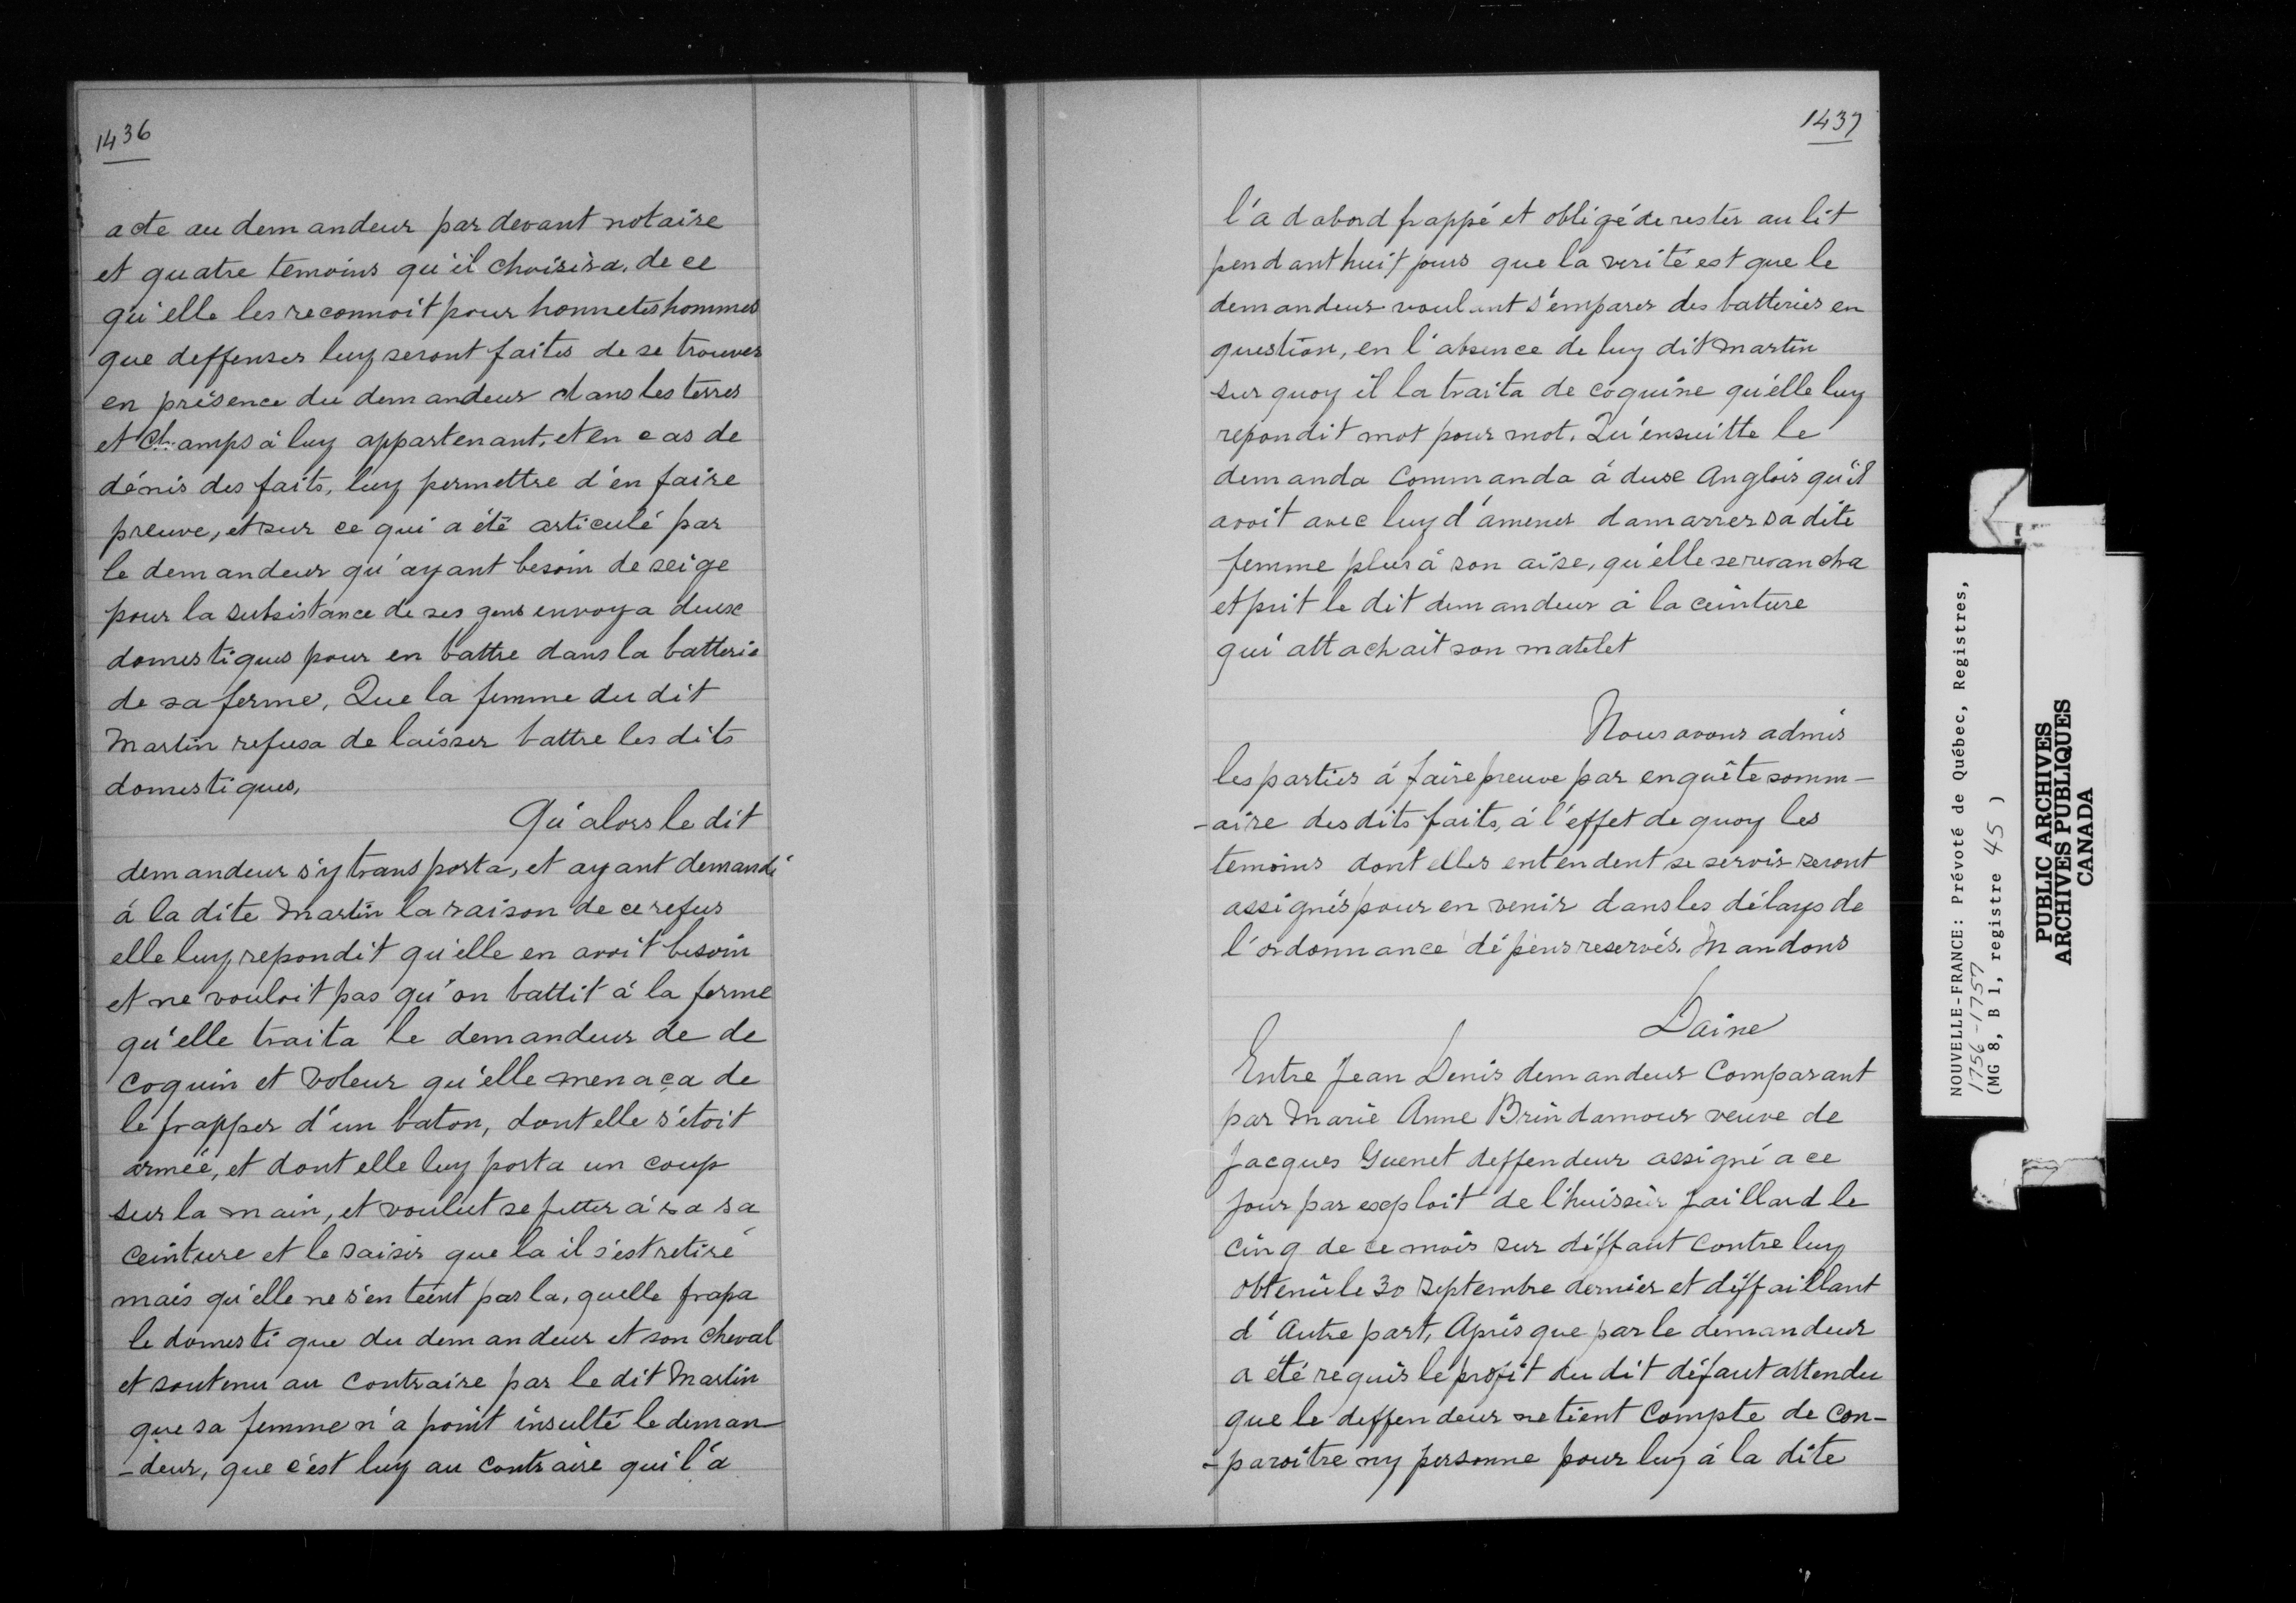 1436
acte au demandeur par devant notaire
et quatre temoins qu'il choisira, de ce
qu'elle les reconnoit pour honnetes hommes
que deffenses luy seront faites de se trouver
en présence du demandeur dans les terres
et champs à luy appartenant, et en cas de
dénis des faits, luy permettre d'en faire
preuve, et sur ce qui a été articulé par
le demandeur qu'ayant besoin de seige
pour la subsistance de ses gens envoya deux
domestiques pour en battre dans la batterie
de sa ferme, Que la femme du dit
Martin refusa de laisser battre les dits
domestiques,
Qu'alors le dit
demandeur s'y transporta, et ayant demandé
à la dite Martin la raison de ce refus
elle luy repondit qu'elle en avoit besoin
et ne vouloit pas qu'on battit à la ferme
qu'elle traita le demandeur de de
coquin et voleur qu'elle menaça de
le frapper d'un baton, dont elle s'étoit
armée, et dont elle luy porta un coup
sur la main, et voulut se jetter à sa sa
ceinture et le saisir que la il s'est retiré
mais qu'elle ne s'en teint pas la, quelle frapa
le domestique du demandeur et son cheval
et soutenu au contraire par le dit Martin
que sa femme n'a point insulté le deman
-deur, que c'est luy au contraire qui l'a
1437
l'a dabord frappé et obligé de rester au lit
pendant huit jours que la verité est que le
demandeur voulant s'emparer des batteries en
question, en l'absence de luy dit Martin
sur quoy il la traita de coquine qu'elle luy
repondit mot pour mot. Qu'ensuitte le
demanda commanda à deux Anglois qu'il
avoit avec luy d'amener damarrer sa dite
femme plus à son aise, qu'elle se revancha
et prit le dit demandeur à la ceinture
qui attachait son matelet
Nous avons admis
les parties à faire preuve par enquête somm-
-aire des dits faits, à l'effet de quoy les
temoins dont elles entendent se servir seront
assignés pour en venir dans les délays de
l'ordonnance dépens reservés. Mandons
Daine
Entre Jean Denis demandeur Comparant
par Marie Anne Brindamour veuve de
Jacques Guenet deffendeur assigné a ce
jour par exploit de l'huissier Jaillard le
cinq de ce mois sur déffaut contre luy
obtenu le 30 Septembre dernier et déffaillant
d'Autre part, Après que par le demandeur
a été requis le profit du dit défaut attendu
que le deffendeur ne tient Compte de Con-
-paroitre ny personne pour luy à la dite
NOUVELLE-FRANCE: Prévoté de Québec, Registres,
1756-1757
(MG 8, B 1, registre 45 )
PUBLIC ARCHIVES
ARCHIVES PUBLIQUES
CANADA